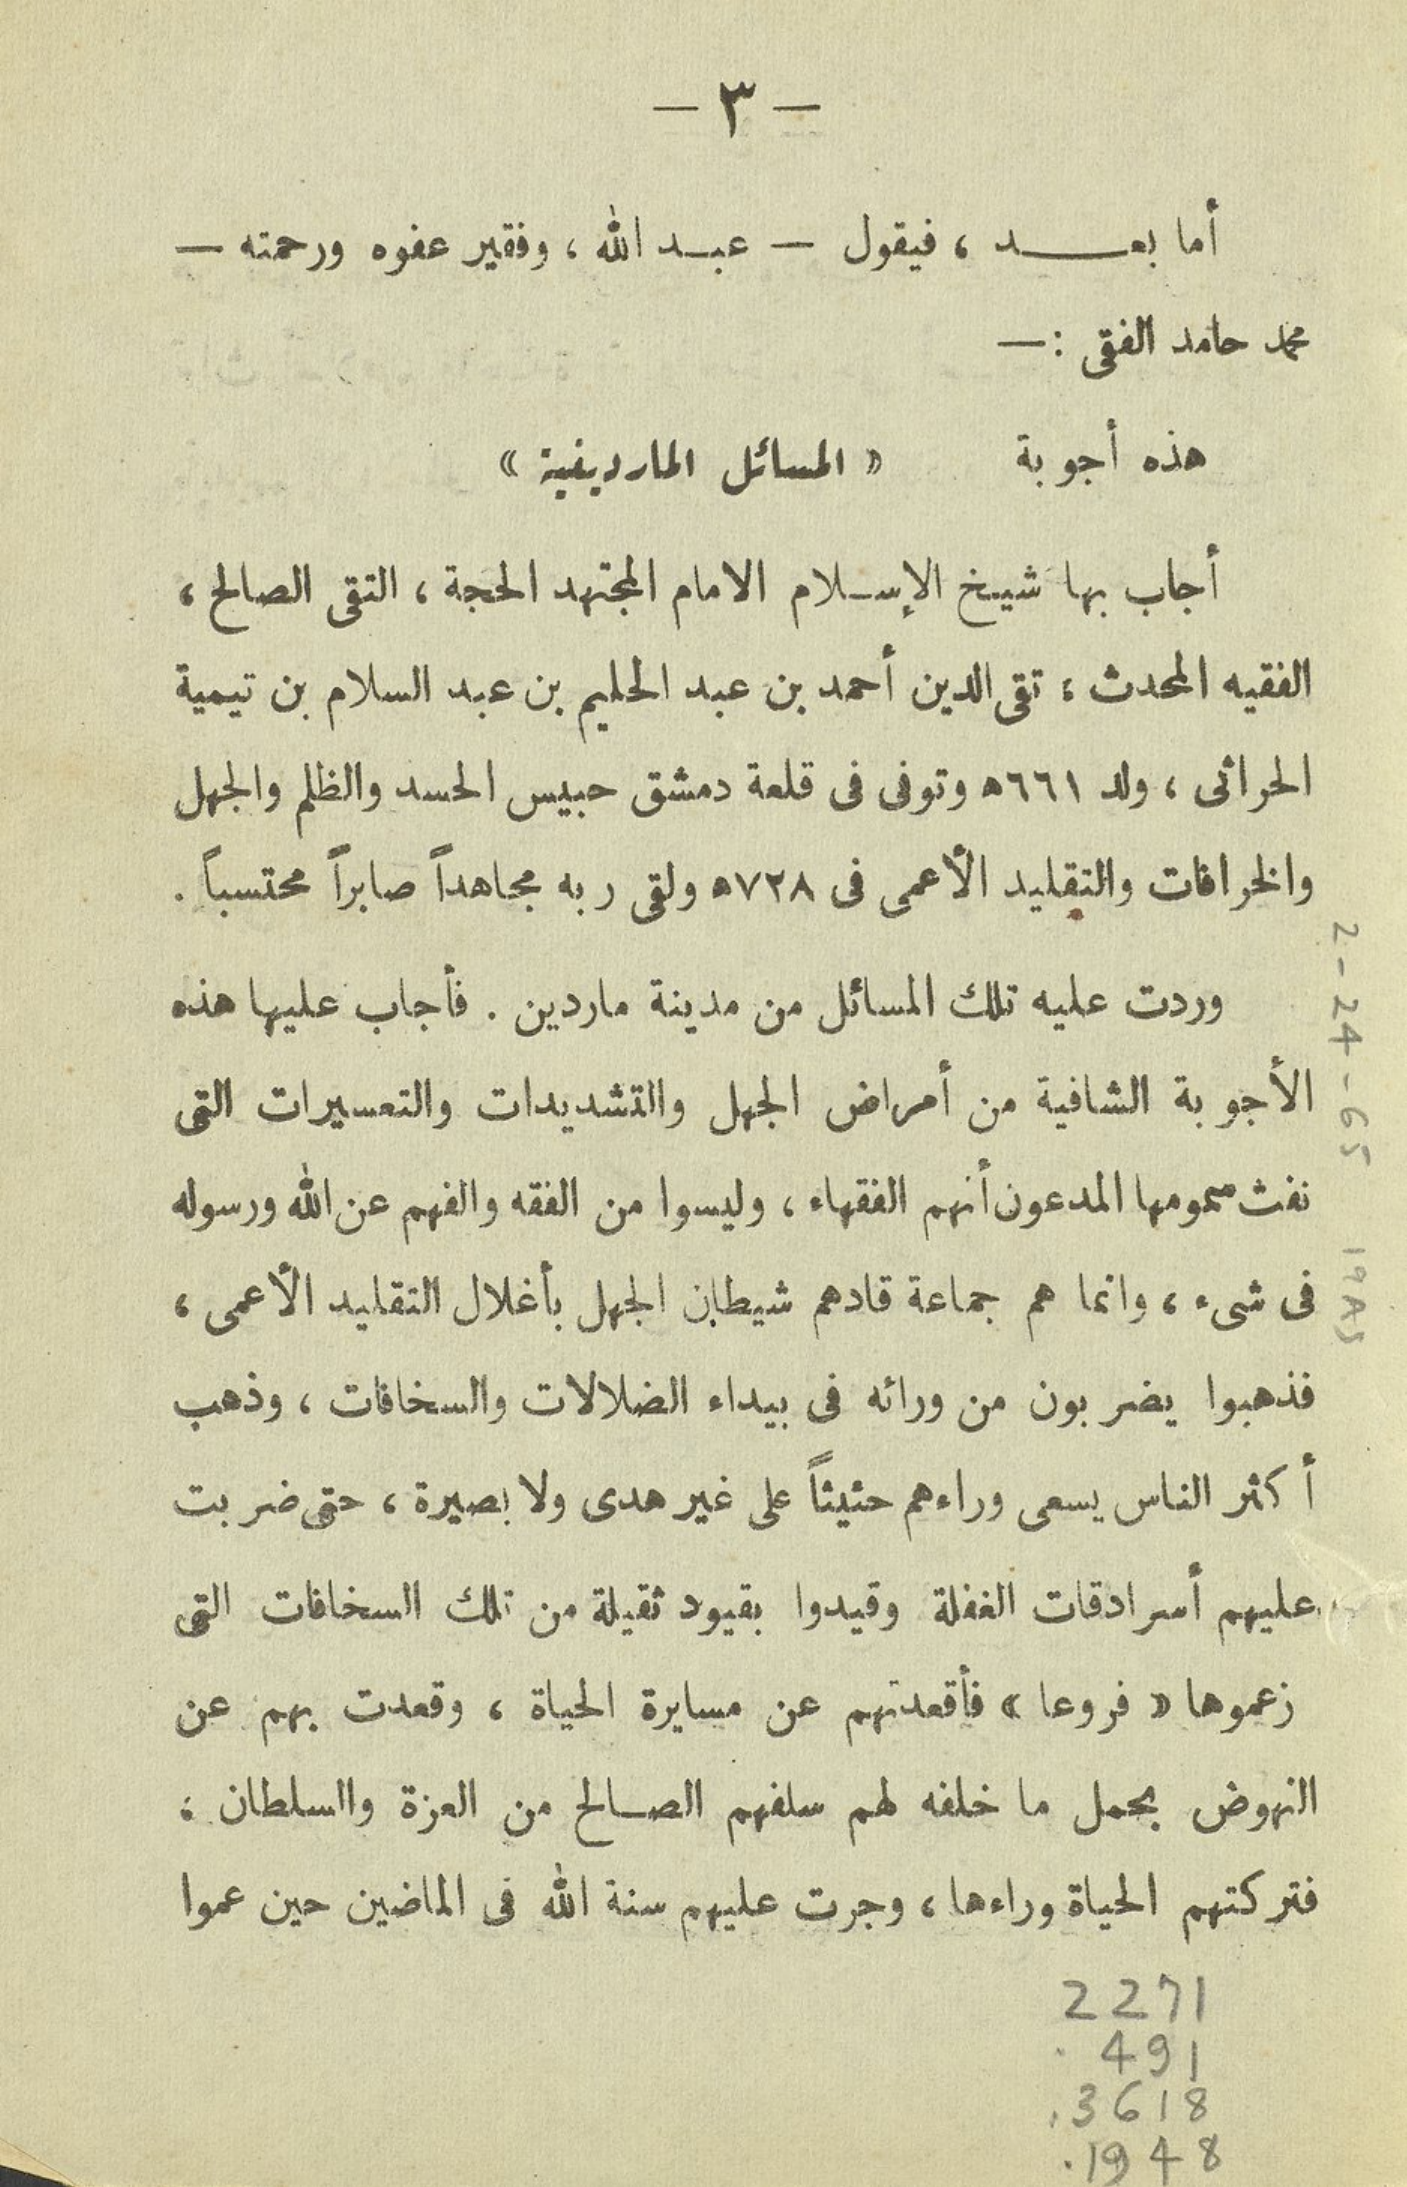 — ٣ —
أما بعـــــد ، فيقول — عبـد الله ، وفقير عفوه ورحمته —
محمد حامد الفقى : —
هذه أجوبة « المسائل الماردينية »
أجاب بها شيخ الإسـلام الامام المجتهد الحجة ، التقى الصالح ،
الفقيه المحدث ، تقى الدين أحمد بن عبد الحليم بن عبد السلام بن تيمية
الحرانى ، ولد ٦٦١ه وتوفى فى قلعة دمشق حبيس الحسد والظلم والجهل
والخرافات والتقليد الأعمى فى ٧٢٨ه ولقى ربه مجاهداً صابراً محتسباً .
وردت عليه تلك المسائل من مدينة ماردين . فأجاب عليها هذه
الأجوبة الشافية من أمراض الجهل والتشديدات والتعسيرات التى
نفث سمومها المدعون أنهم الفقهاء ، وليسوا من الفقه والفهم عن الله ورسوله
فى شىء ، وانما هم جماعة قادهم شيطان الجهل بأغلال التقليد الأعمى ،
فذهبوا يضربون من ورائه فى بيداء الضلالات والسخافات ، وذهب
أكثر الناس يسعى وراءهم حثيثاً على غير هدى ولا بصيرة ، حتى ضربت
عليهم أسرادقات الغفلة وقيدوا بقيود ثقيلة من تلك السخافات التى
زعموها « فروعا » فأقعدتهم عن مسايرة الحياة ، وقعدت بهم عن
النهوض بحمل ما خلفه لهم سلفهم الصـالح من العزة واالسلطان ،
فتركتهم الحياة وراءها ، وجرت عليهم سنة الله فى الماضين حين عموا
2271
.491
.3618
.1948
2-24-65